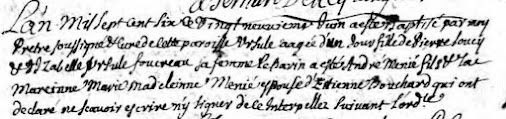 L'an Mil sept cent six le vingt neuvieme Juin a esté Baptisé par moy
Pretre soussigné Curé de cette paroisse Ursule aagée d'un jour fille de Pierre Soucy
& d'Izabelle Ursule foucreau sa femme le Parin a esté André Menié fils & la
Mareinne Marie Madeleinne Menié espouse d'Estienne Bouchard qui ont
declaré ne scavoir escrire n'y signer de ce Interpellez suivant l'ord^ce